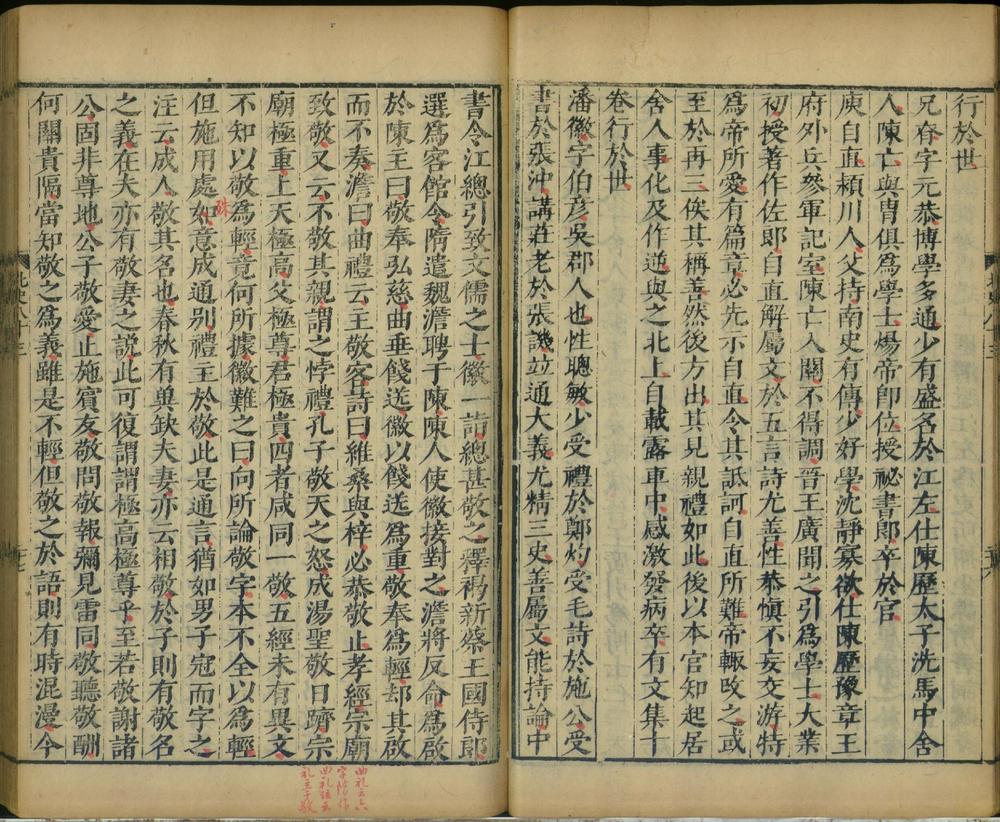 行於世
兄眘字元恭博學多通少有盛名於江左仕陳歷太子洗馬中舍
人陳亡與胄俱爲學士煬帝卽位授祕書郎卒於官
庾自直潁川人父持南史有傳少好學沈靜寡欲仕陳歷豫章王
府外兵參軍記室陳亡入關不得調晉王廣聞之引爲學士大業
初授著作佐郎自直解屬文於五言詩尤善性恭愼不妄交游特
爲帝所愛有篇章必先示自直令其詆訶自直所難帝輒改之或
至於再三俟其稱善然後方出其見親禮如此後以本官知起居
舍人事化及作逆與之北上自載露車中感激發病卒有文集十
卷行於世
潘徽字伯彦吳郡人也性聰敏少受禮於鄭灼受毛詩於施公受
書於張沖講莊老於張譏並通大義尤精三史善屬文能持論中
書令江總引致文儒之士徽一詣總甚敬之釋褐新蔡王國侍郎
選爲客館令隋遣魏澹聘于陳陳人使徽接對之澹將反命爲啟
於陳主曰敬奉弘慈曲垂餞送徽以餞送爲重敬奉爲輕却其啟
而不奏澹曰曲禮云主敬客詩曰維桑與梓必恭敬止孝經宗廟
致敬又云不敬其親謂之悖禮孔子敬天之怒成湯聖敬日躋宗
廟極重上天極高父極尊君極貴四者咸同一敬五經未有異文
不知以敬爲輕竟何所據徽難之曰向所論敬字本不全以爲輕
但施用處殊意成通别禮主於敬此是通言猶如男子冠而字之
注云成人敬其名也春秋有兾缺夫妻亦云相敬於子則有敬名
之義在夫亦有敬妻之説此可復謂謂極高極尊乎至若敬謝諸
公固非尊地公子敬愛止施賓友敬問敬報彌見雷同敬聽敬酬
何關貴隔當知敬之爲義雖是不輕但敬之於語則有時混漫今